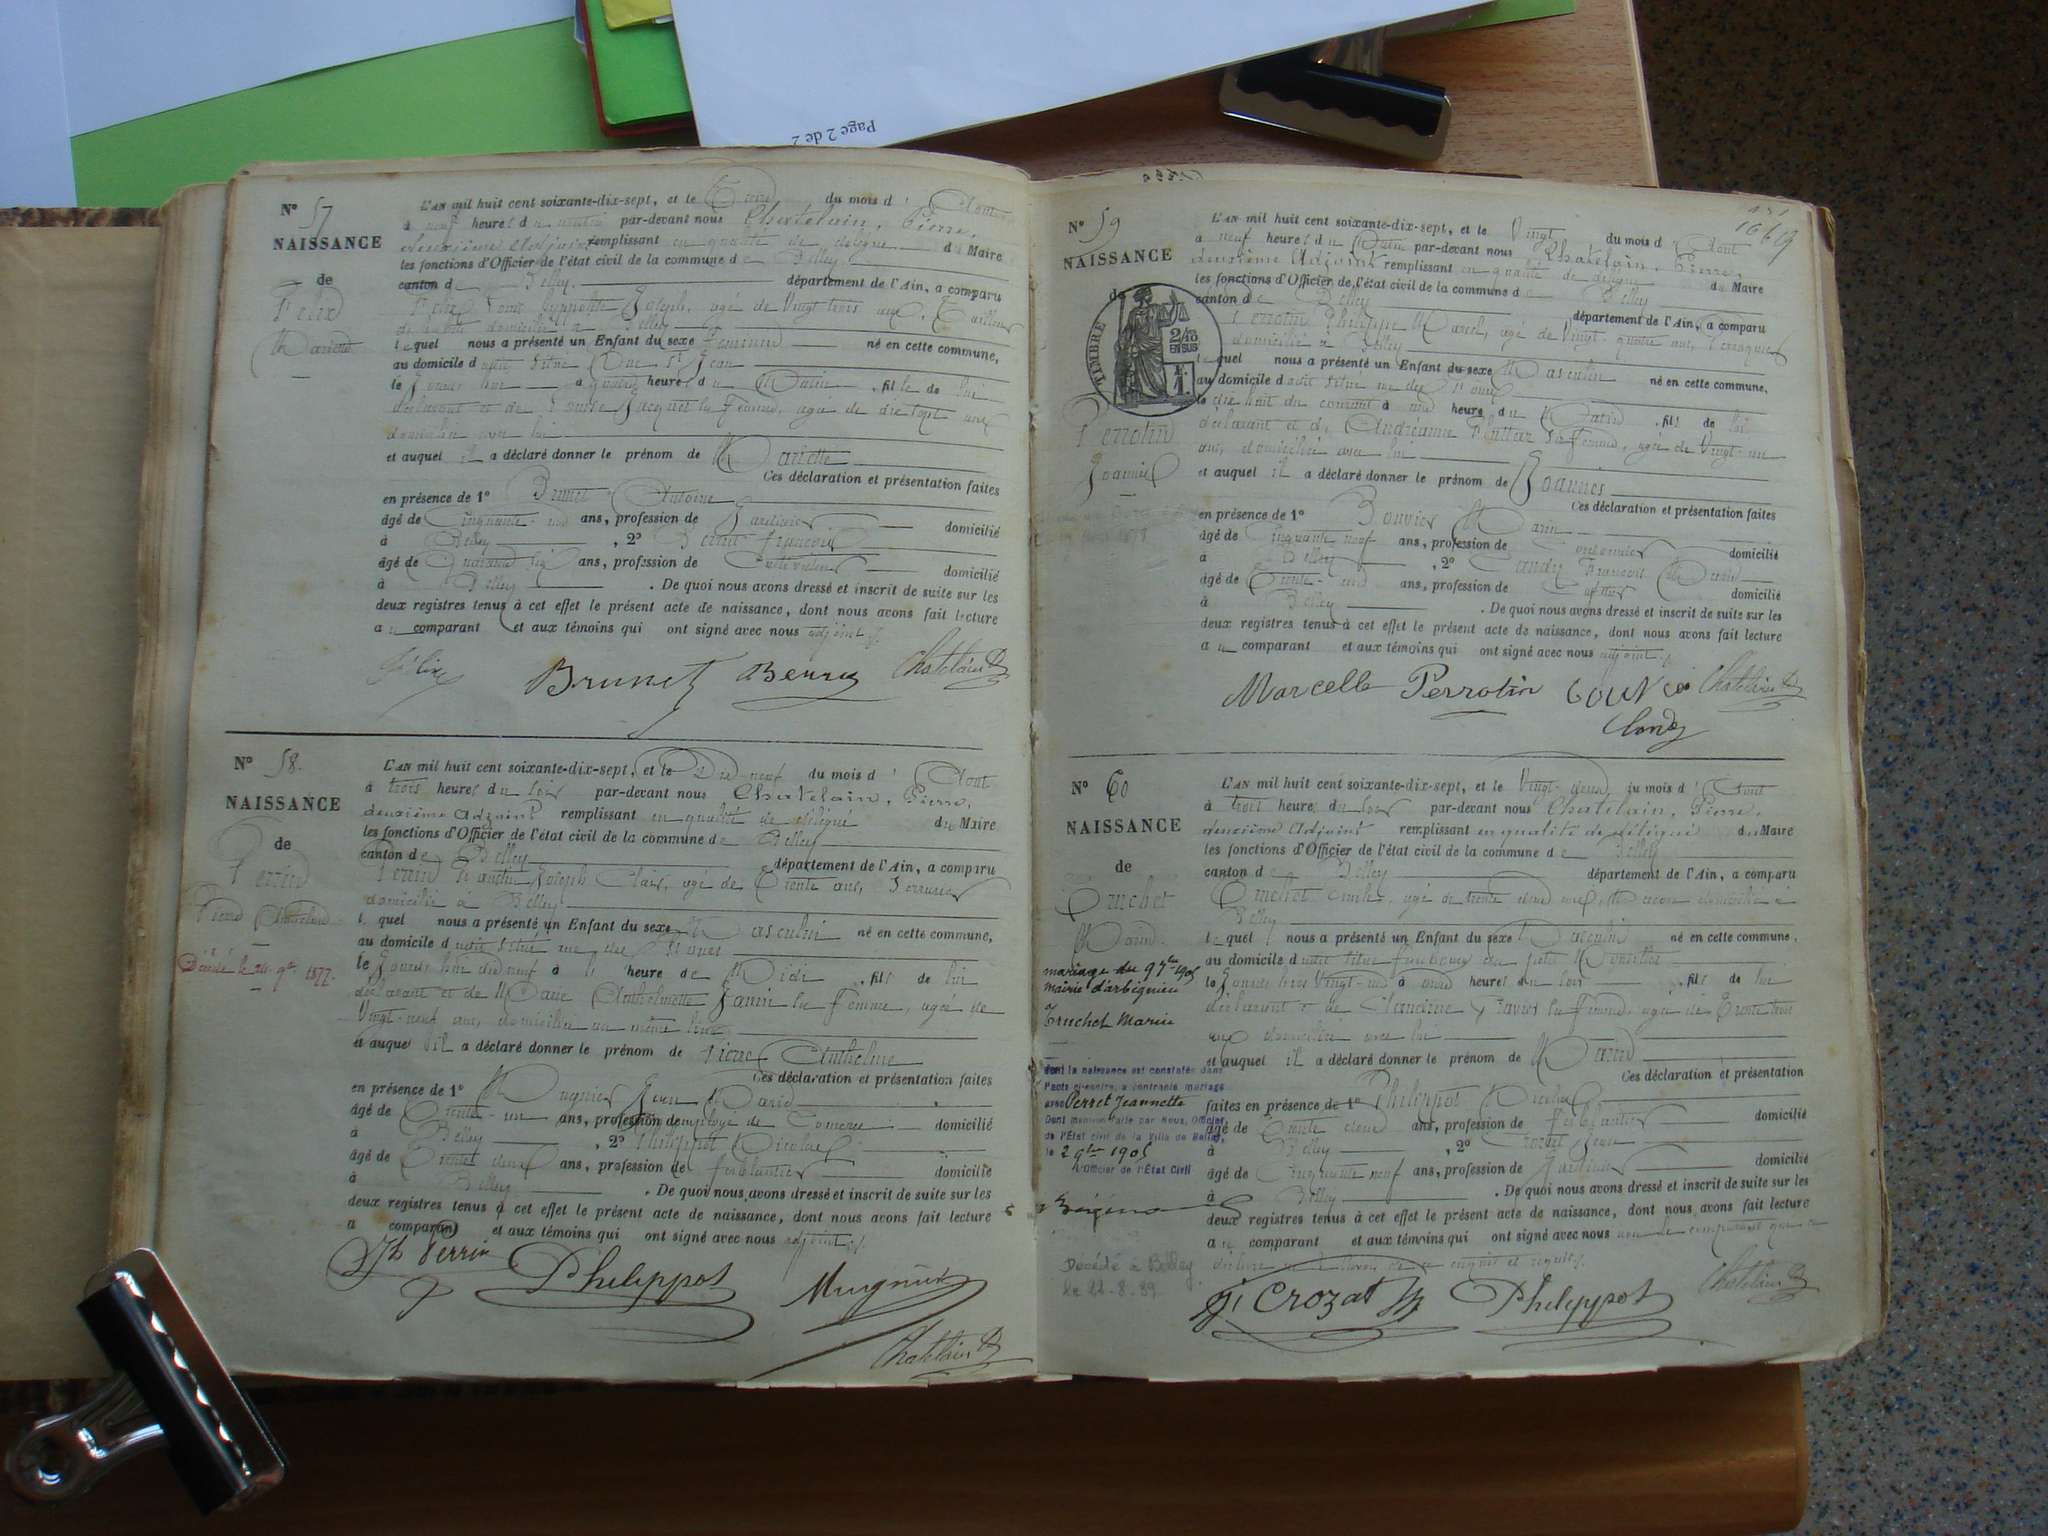 Page 2 de 2
N° 57
NAISSANCE
de
Felix
Mariette
L'AN mil huit cent soixante-dix-sept, et le Treize du mois d' Aout
à neuf heures du matin par-devant nous Chatelain, Pierre,
deuxième Adjoint remplissant en qualité de délégué du Maire
les fonctions d'Officier de l'état civil de la commune de Belley
canton de Belley département de l'Ain, a comparu
Felix Louis hyppolite Joseph, agé de Vingt trois ans, Tailleur
domicilié à Belley
lequel nous a présenté un Enfant du sexe féminin né en cette commune,
au domicile dudit situé Rue St Jean
le Jourd'hui à quatre heures du Matin, fille de lui
déclarant et de Louise Jacquet sa femme, agée de dix sept ans
domiciliée avec lui
et auquel il a déclaré donner le prénom de Mariette
Ces déclaration et présentation faites
en présence de 1° Brunet Antoine
âgé de Cinquante ans, profession de Jardinier domicilié
à Belley, 2° François
âgé de Quarante six ans, profession de Cultivateur domicilié
à Belley. De quoi nous avons dressé et inscrit de suite sur les
deux registres tenus à cet effet le présent acte de naissance, dont nous avons fait lecture
au comparant et aux témoins qui ont signé avec nous adjoint.
Félix Brunet Chatelain
N° 58.
NAISSANCE
de
Perrin
Pierre Anthelme
Décédé le 1877.
L'AN mil huit cent soixante-dix-sept, et le Dix neuf du mois d' Aout
à trois heures du soir par-devant nous Chatelain, Pierre,
deuxième adjoint remplissant en qualité de délégué du Maire
les fonctions d'Officier de l'état civil de la commune de Belley
canton de Belley département de l'Ain, a comparu
Perrin Joseph Clair, agé de Trente ans, Serrurier
domicilié à Belley
lequel nous a présenté un Enfant du sexe Masculin né en cette commune,
au domicile dudit situé rue des
le Jourd'hui dix neuf à heure de Midi, fils de lui
déclarant et de Marie Anthelmette Janin sa femme, agée de
Vingt-neuf ans, domiciliée au même lieu
et auquel il a déclaré donner le prénom de Pierre Anthelme
Ces déclaration et présentation faites
en présence de 1° Mugnier Jean Marie
âgé de Trente-un ans, profession de employé de Commerce domicilié
à Belley, 2° Philippot Nicolas
âgé de Trente deux ans, profession de ferblantier domicilié
à Belley. De quoi nous avons dressé et inscrit de suite sur les
deux registres tenus à cet effet le présent acte de naissance, dont nous avons fait lecture
au comparant et aux témoins qui ont signé avec nous adjoint.
Jh Perrin Philippot Mugnier
Chatelain
N° 59
NAISSANCE
de
TIMBRE
2/10
EN SUS
Perrotin
Joannès
L'AN mil huit cent soixante-dix-sept, et le Vingt du mois d' Aout
à neuf heures du Matin par-devant nous Chatelain, Pierre,
deuxième Adjoint remplissant en qualité de délégué du Maire
les fonctions d'Officier de l'état civil de la commune de Belley
canton de Belley département de l'Ain, a comparu
Perrotin Philippe Marcel, agé de Vingt-quatre ans,
domicilié à Belley
lequel nous a présenté un Enfant du sexe Masculin né en cette commune,
au domicile dudit situé rue des
le dix huit du courant à heure du Matin, fils de lui
déclarant et de sa femme, agée de Vingt-un
ans, domiciliée avec lui
et auquel il a déclaré donner le prénom de Joannès
Ces déclaration et présentation faites
en présence de 1° Bouvier Marin
âgé de Cinquante neuf ans, profession de domicilié
à Belley, 2° François
âgé de Trente ans, profession de domicilié
à Belley. De quoi nous avons dressé et inscrit de suite sur les
deux registres tenus à cet effet le présent acte de naissance, dont nous avons fait lecture
au comparant et aux témoins qui ont signé avec nous adjoint.
Marcelle Perrotin Chatelain
N° 60
NAISSANCE
de
Truchet
Marin.
mariage du 9 7bre 1905
mairie d'arbignieu
Truchet Marin
dont la naissance est constatée dans
l'acte ci-contre, a contracté mariage
avec Perret Jeannette
Dont mention faite par Nous, Officier
de l'État civil de la Ville de Belley,
le 2 9bre 1905
L'Officier de l'État Civil
Décédé à Belley
le 22-8-39
L'AN mil huit cent soixante-dix-sept, et le Vingt-deux du mois d' Aout
à trois heures du soir par-devant nous Chatelain, Pierre,
deuxième Adjoint remplissant en qualité de délégué du Maire
les fonctions d'Officier de l'état civil de la commune de Belley
canton de Belley département de l'Ain, a comparu
Truchet agé de trente deux ans, Maçon domicilié à
Belley
lequel nous a présenté un Enfant du sexe Masculin né en cette commune,
au domicile dudit situé faubourg du petit
le Vingt-un à heures du soir, fils de lui
déclarant et de Claudine Travier sa femme, agée de Trente trois
ans domiciliée avec lui
et auquel il a déclaré donner le prénom de Marin
Ces déclaration et présentation
faites en présence de 1° Philippot Nicolas
âgé de Trente deux ans, profession de Ferblantier domicilié
à Belley, 2° Crozat Jean
âgé de Cinquante neuf ans, profession de Jardinier domicilié
à Belley. De quoi nous avons dressé et inscrit de suite sur les
deux registres tenus à cet effet le présent acte de naissance, dont nous avons fait lecture
au comparant et aux témoins qui ont signé avec nous non le comparant qui a
déclaré ne le savoir de ce enquis et requis.
Crozat Philippot Chatelain